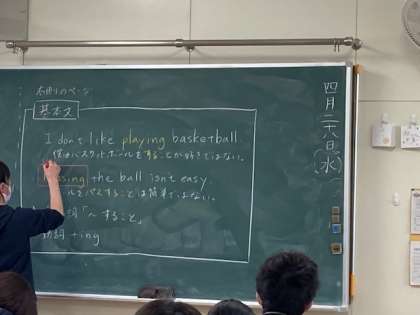 本切りのページ
基本文
I don't like playing basketball.
僕はバスケットボールをすることが好きではない。
ssing the ball isn't easy.
ルをパスすることは簡単ではない。
詞「〜すること」
動詞+ing
四月二十八日(水)